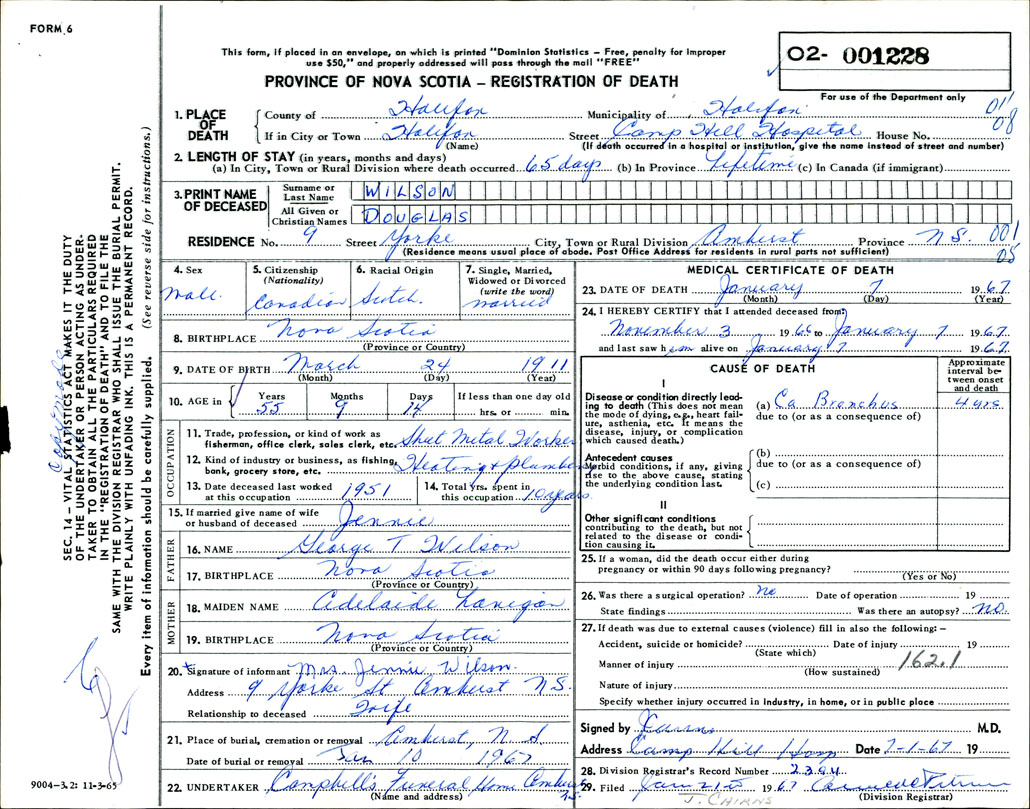 FORM 6
This form, if placed in an envelope, on which is printed "Dominion Statistics – Free, penalty for improper
use $50," and properly addressed will pass through the mail "FREE"
PROVINCE OF NOVA SCOTIA – REGISTRATION OF DEATH
02- 001228
For use of the Department only
1. PLACE OF DEATH
County of Halifax Municipality of Halifax 011
If in City or Town Halifax Street Camp Hill Hospital House No. 08
(Name) (If death occurred in a hospital or institution, give the name instead of street and number)
2. LENGTH OF STAY (in years, months and days)
(a) In City, Town or Rural Division where death occurred 65 days (b) In Province Lifetime (c) In Canada (if immigrant)
3. PRINT NAME OF DECEASED
Surname or Last Name WILSON
All Given or Christian Names DOUGLAS
RESIDENCE No. 9 Street Yorke City, Town or Rural Division Amherst Province N.S. 001
(Residence means usual place of abode. Post Office Address for residents in rural parts not sufficient) 05
4. Sex Male
5. Citizenship (Nationality) Canadian
6. Racial Origin Scotch.
7. Single, Married, Widowed or Divorced (write the word) married
8. BIRTHPLACE Nova Scotia
(Province or Country)
9. DATE OF BIRTH March 24 1911
(Month) (Day) (Year)
10. AGE in Years Months Days If less than one day old
55 9 14 hrs. or min.
OCCUPATION
11. Trade, profession, or kind of work as fisherman, office clerk, sales clerk, etc. Sheet Metal Worker
12. Kind of industry or business, as fishing, bank, grocery store, etc. Heating & Plumbing
13. Date deceased last worked at this occupation 1951
14. Total yrs. spent in this occupation 10 years
15. If married give name of wife or husband of deceased Jennie
FATHER
16. NAME George T Wilson
17. BIRTHPLACE Nova Scotia
(Province or Country)
MOTHER
18. MAIDEN NAME Adelaide Lanigan
19. BIRTHPLACE Nova Scotia
(Province or Country)
20. Signature of informant Mrs. Jennie Wilson.
Address 9 Yorke St Amherst N.S.
Relationship to deceased Wife
21. Place of burial, cremation or removal Amherst, N S
Date of burial or removal Jan 10 1967
22. UNDERTAKER Campbell's Funeral Home Amherst N.S.
(Name and address)
MEDICAL CERTIFICATE OF DEATH
23. DATE OF DEATH January 7 1967
(Month) (Day) (Year)
24. I HEREBY CERTIFY that I attended deceased from:
November 3 1966 to January 7 1967
and last saw him alive on January 7 1967.
CAUSE OF DEATH
Approximate interval between onset and death
I
Disease or condition directly leading to death (This does not mean the mode of dying, e.g., heart failure, asthenia, etc. It means the disease, injury, or complication which caused death.)
(a) Ca Bronchus 4 yrs
due to (or as a consequence of)
Antecedent causes
Morbid conditions, if any, giving rise to the above cause, stating the underlying condition last.
(b)
due to (or as a consequence of)
(c)
II
Other significant conditions contributing to the death, but not related to the disease or condition causing it.
25. If a woman, did the death occur either during
pregnancy or within 90 days following pregnancy?
(Yes or No)
26. Was there a surgical operation? no Date of operation 19
State findings Was there an autopsy? no.
27. If death was due to external causes (violence) fill in also the following: –
Accident, suicide or homicide? Date of injury 19
(State which)
Manner of injury 162.1
(How sustained)
Nature of injury
Specify whether injury occurred in Industry, in home, or in public place
Signed by Cairns M.D.
Address Camp Hill Hosp Date 7-1-67 19
28. Division Registrar's Record Number 2394
29. Filed 1967
(Division Registrar)
J. CAIRNS
SEC. 14 – VITAL STATISTICS ACT MAKES IT THE DUTY
OF THE UNDERTAKER OR PERSON ACTING AS UNDER-
TAKER TO OBTAIN ALL THE PARTICULARS REQUIRED
IN THE "REGISTRATION OF DEATH" AND TO FILE THE
SAME WITH THE DIVISION REGISTRAR WHO SHALL ISSUE THE BURIAL PERMIT.
WRITE PLAINLY WITH UNFADING INK. THIS IS A PERMANENT RECORD.
Every item of information should be carefully supplied. (See reverse side for instructions.)
9004–3.2: 11-3-65